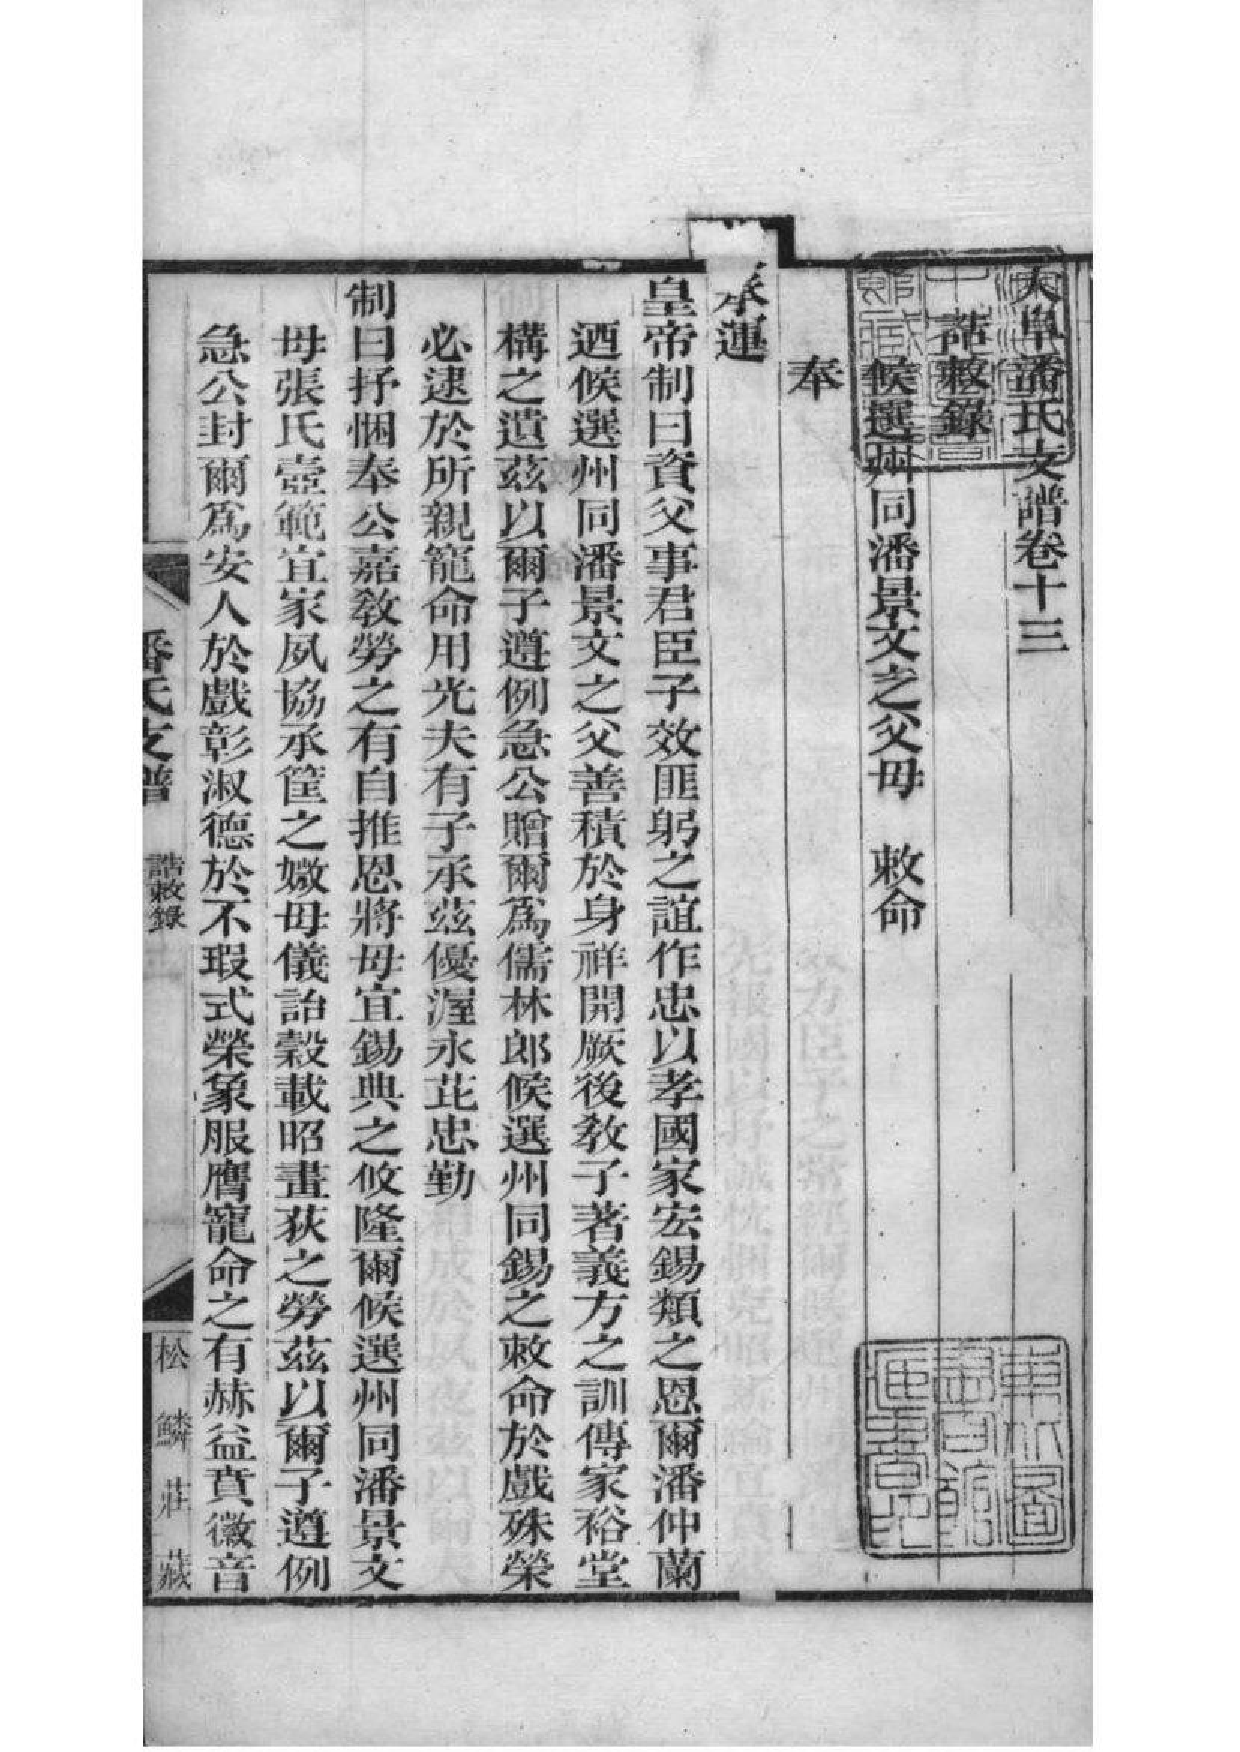 大阜潘氏支譜卷十三
誥敕錄
候選州同潘景文之父母　敕命
奉
承運
皇帝制曰資父事君臣子效匪躬之誼作忠以孝國家宏錫類之恩爾潘仲蘭
迺候選州同潘景文之父善積於身祥開厥後敎子著義方之訓傳家裕堂
構之遺茲以爾子遵例急公贈爾爲儒林郎候選州同錫之敕命於戲殊榮
必逮於所親寵命用光夫有子承茲優渥永茈忠勤
制曰抒悃奉公嘉敎勞之有自推恩將母宜錫典之攸隆爾候選州同潘景文
母張氏壼範宜家夙協承筐之媺母儀詒穀載昭畫荻之勞茲以爾子遵例
急公封爾爲安人於戲彰淑德於不瑕式榮象服膺寵命之有赫益賁徽音
潘氏支譜　誥敕錄
松鱗莊藏